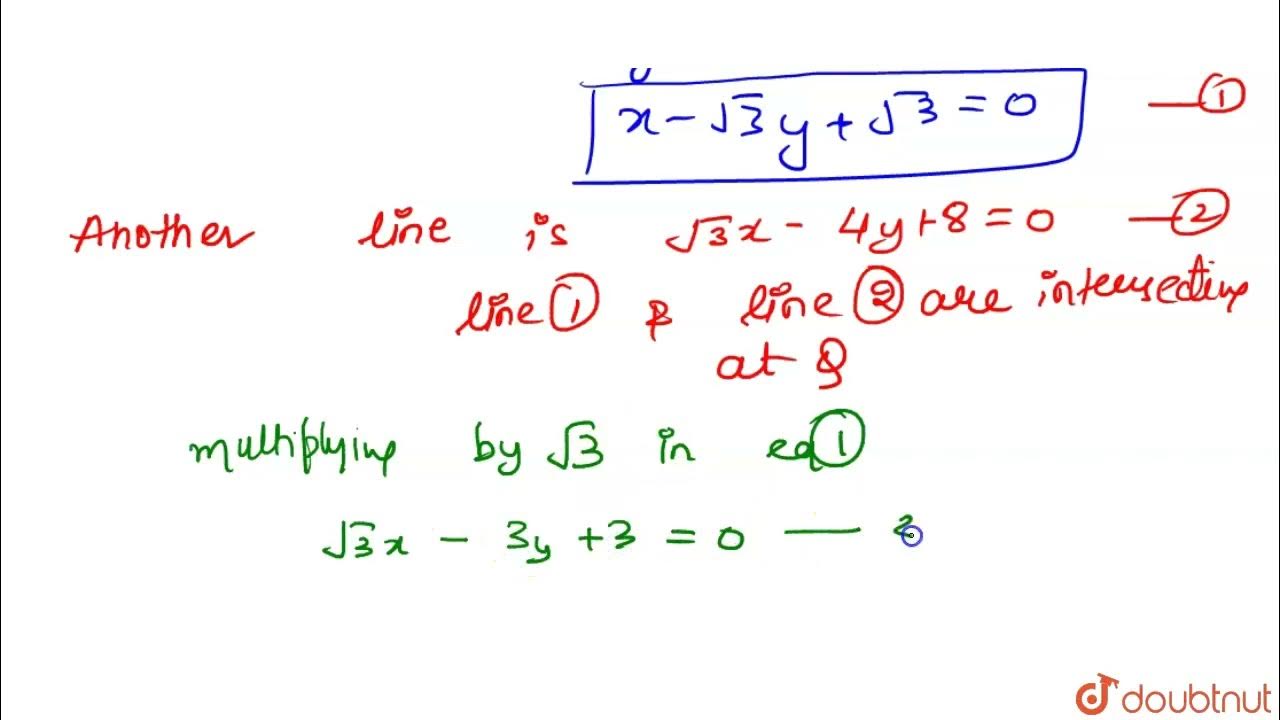 x - √3y + √3 = 0 — ①
Another line is √3x - 4y + 8 = 0 — ②
line ① & line ② are intersecting
at Q
multiplying by √3 in eq ①
√3x - 3y + 3 = 0 —
doubtnut